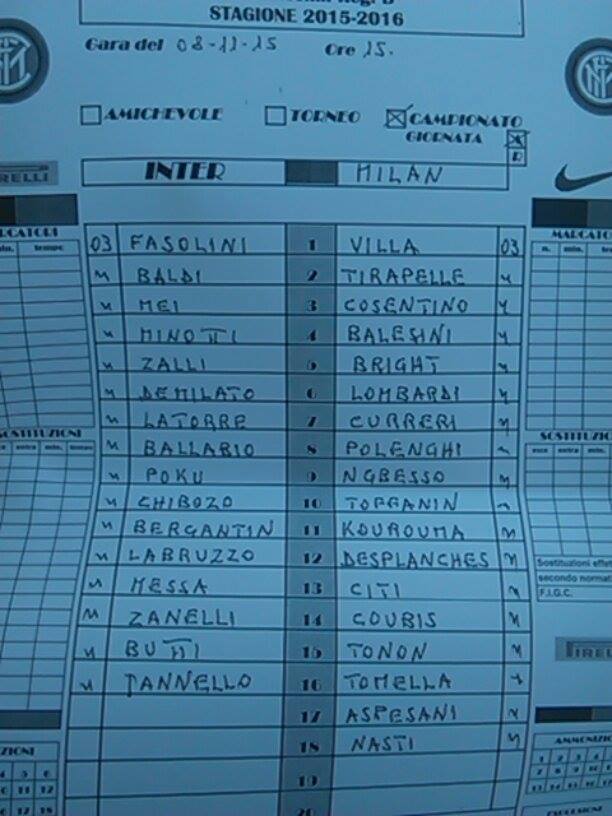 STAGIONE 2015-2016
Gara del 08-11-15 Ore 15.
AMICHEVOLE TORNEO CAMPIONATO
GIORNATA
R
INTER MILAN
MARCATORI
n. min. tempo
03 FASOLINI 1 VILLA 03
" BALDI 2 TIRAPELLE "
" MEI 3 COSENTINO "
" MINOTTI 4 BALESINI "
" ZALLI 5 BRIGHT "
" DEMILATO 6 LOMBARDI "
" LATORRE 7 CURRERI "
SOSTITUZIONI SOSTITUZIONI
esce entra min. tempo esce entra min.
" BALLABIO 8 POLENGHI "
" POKU 9 NGBESSO "
" CHIBOZO 10 "
" BERGANTIN 11 KOUROUMA "
" LABRUZZO 12 DESPLANCHES "
Sostituzioni
secondo
F.I.G.C.
" MESSA 13 CITI "
" ZANELLI 14 COUBIS "
" BUTTI 15 TONON "
" IANNELLO 16 TOMELLA "
17 ASPESANI "
18 NASTI "
19
20
4 5 6
11 12
17 18
1 2 3 4
7 8 9 10
13 14 15